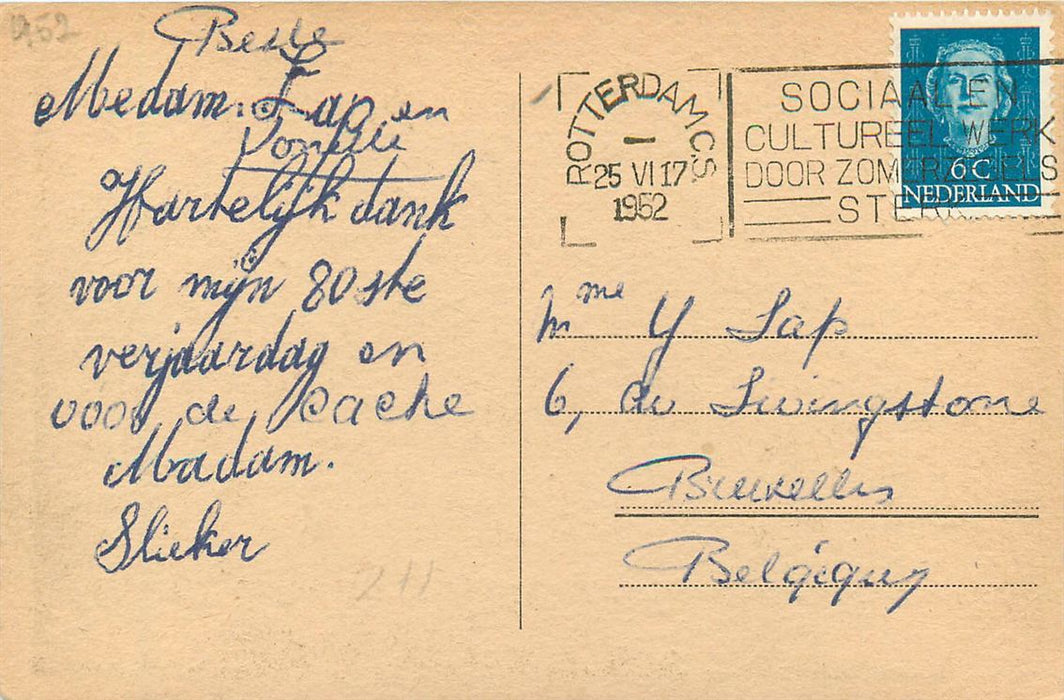 1952
Beste
Medam. Lap en
Hartelijk dank
voor mijn 80ste
verjaardag en
voor de cache
Madam.
Slieker
211
ROTTERDAM C.S.
25 VI 17
1952
SOCIAAL EN
CULTUREEL WERK
DOOR ZOMERZEGELS
STERK
6C
NEDERLAND
Mme Y Lap
6, av Livingstone
Bruxelles
Belgique